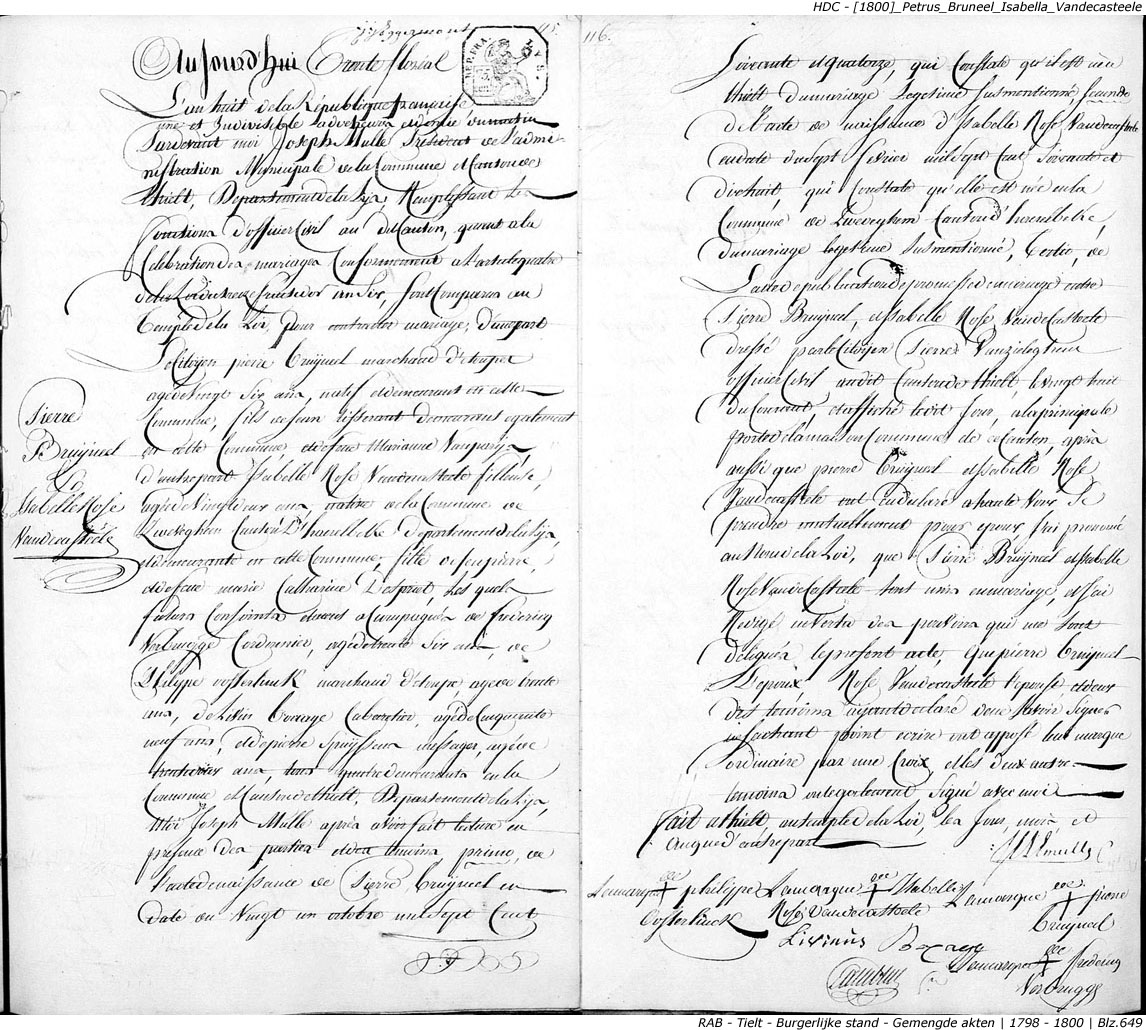 HDC - [1800]_Petrus_Bruneel_Isabella_Vandecasteele
115.
Aujourd'hui Trente floréal
L'an huit de la République française
une et Indivisible à dix heures du matin
Pardevant moi Joseph Mulle Président de l'admi
nistration Municipale de la Commune et Canton de
thielt, Departement de la Lys, Remplissant les
fonctions d'officier Civil au du Canton, quant a la
Célébration des mariages Conformement a l'article quatre
de la Loi du treize fructidor an Six, sont Comparus au
Temple de la Loi, pour contracter mariage, d'une part
Le Citoyen pierre Bruijneel marchand d'etoupes
agé de Vingt Six ans, natif et demeurant en cette
Commune, fils de demeurant egalement
en cette Commune, et de feue Marianne Vanparijs,
d'autre part Isabelle Rose Vandecasteele fileuse,
agée de Vingt deux ans, native de la Commune de
Zweveghem Canton D'harelbeke Departement de la Lys,
et demeurante en cette Commune, fille de feu pierre,
et de feue marie Catharine Despriet, Les quels
futurs Conjoints etoient accompagnés de frederiq
Verbrugge Cordonnier, agé de trente Six ans, de
Philippe oosterlinck marchand d'etoupes, agé de trente
ans, de Livin Bovrage Cabaretier, agé de Cinquante
neuf ans, et de pierre Spruijssens messager, agé de
trente ans, tous quatre demeurants en la
Commune et Canton de thielt, Departement de la Lys,
Moi Joseph Mulle après avoir fait lecture en
présence des parties et des témoins primo, de
l'acte de naissance de Pierre Bruijneel en
date du Vingt un octobre mil Sept Cent
Pierre
Bruijneel
&
Isabelle Rose
Vandecasteele
116.
Soixante et Quatorze, qui Constate qu'il est né a
thielt du mariage Legitime Susmentionné, Secundo
de l'acte de naissance d'Isabelle Rose Vandecasteele
en date du Sept fevrier mil Sept Cent Soixante et
dix huit, qui Constate qu'elle est née en la
Commune de Zweveghem Canton d'harelbeke
du mariage legitime Susmentionné, Tertio, de
L'acte de publication de promesse de mariage entre
Pierre Bruijneel, et Isabelle Rose Vandecasteele
dressé par le Citoijen Pierre
officier Civil au dit Canton de thielt, le vingt huit
du Courant, et affiché le dit Jour, a la principale
porte de la maison Commune de ce Canton, après
aussi que pierre Bruijneel et Isabelle Rose
Vandecasteele ont eu declaré a haute Voix Se
prendre mutuellement pour epoux, J'ai prononcé
au Nom de la Loi, que Pierre Bruijneel et Isabelle
Rose Vandecasteele Sont unis en mariage, et J'ai
Redigé en Vertu des pouvoirs qui me Sont
delegués le present acte, Que pierre Bruijneel
L'epoux Rose Vandecasteele l'epouse et deux
des temoins
ne sachant point ecrire ont apposé leur marque
ordinaire par une Croix, et les deux autres
temoins ont egalement Signé avec moi
fait a thielt, au temple de la Loi, les Jour, mois, et
an que d'autre part
J Mulle
La marque + philippe
Oosterlinck
La marque + Isabelle
Rose Vandecasteele
La marque + pierre
Bruijneel
Livinus
La marque + frederiq
Verbrugge
RAB - Tielt - Burgerlijke stand - Gemengde akten | 1798 - 1800 | Blz.649